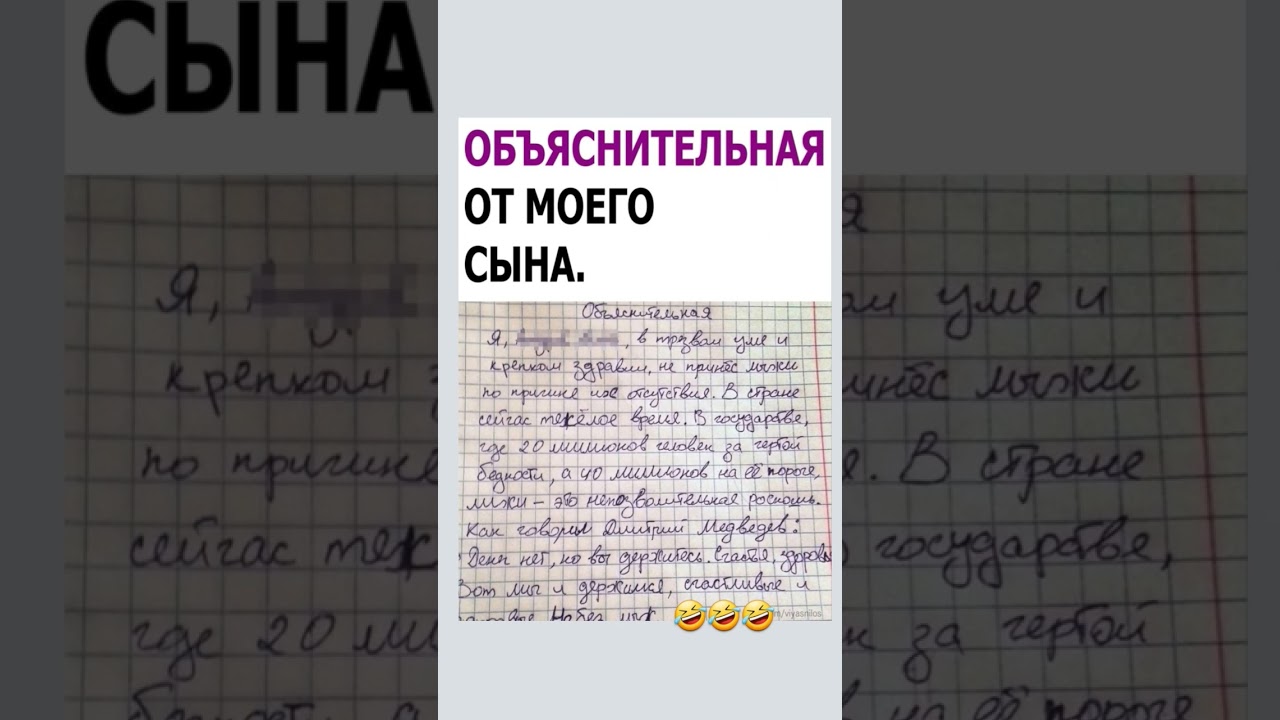 СЫНА.
ОБЪЯСНИТЕЛЬНАЯ
ОТ МОЕГО
СЫНА.
Объяснительная
Я, в трезвом уме и
крепком здравии, не принёс лыжи
по причине их отсутствия. В стране
сейчас тежёлое время. В государстве,
где 20 миллионов человек за чертой
бедности, а 40 миллионов на её пороге,
лыжи – это непозволительная роскошь.
Как говорил Дмитрий Медведев:
Денег нет, но вы держитесь. Счастья, здоровь
Вот мы и держимся, счастливые и
Но без лыж
🤣🤣🤣
Я,
крепком
по причине
сейчас
где 20
а
уме и
принёс лыжи
. В стране
государстве,
за чертой
на её пороге